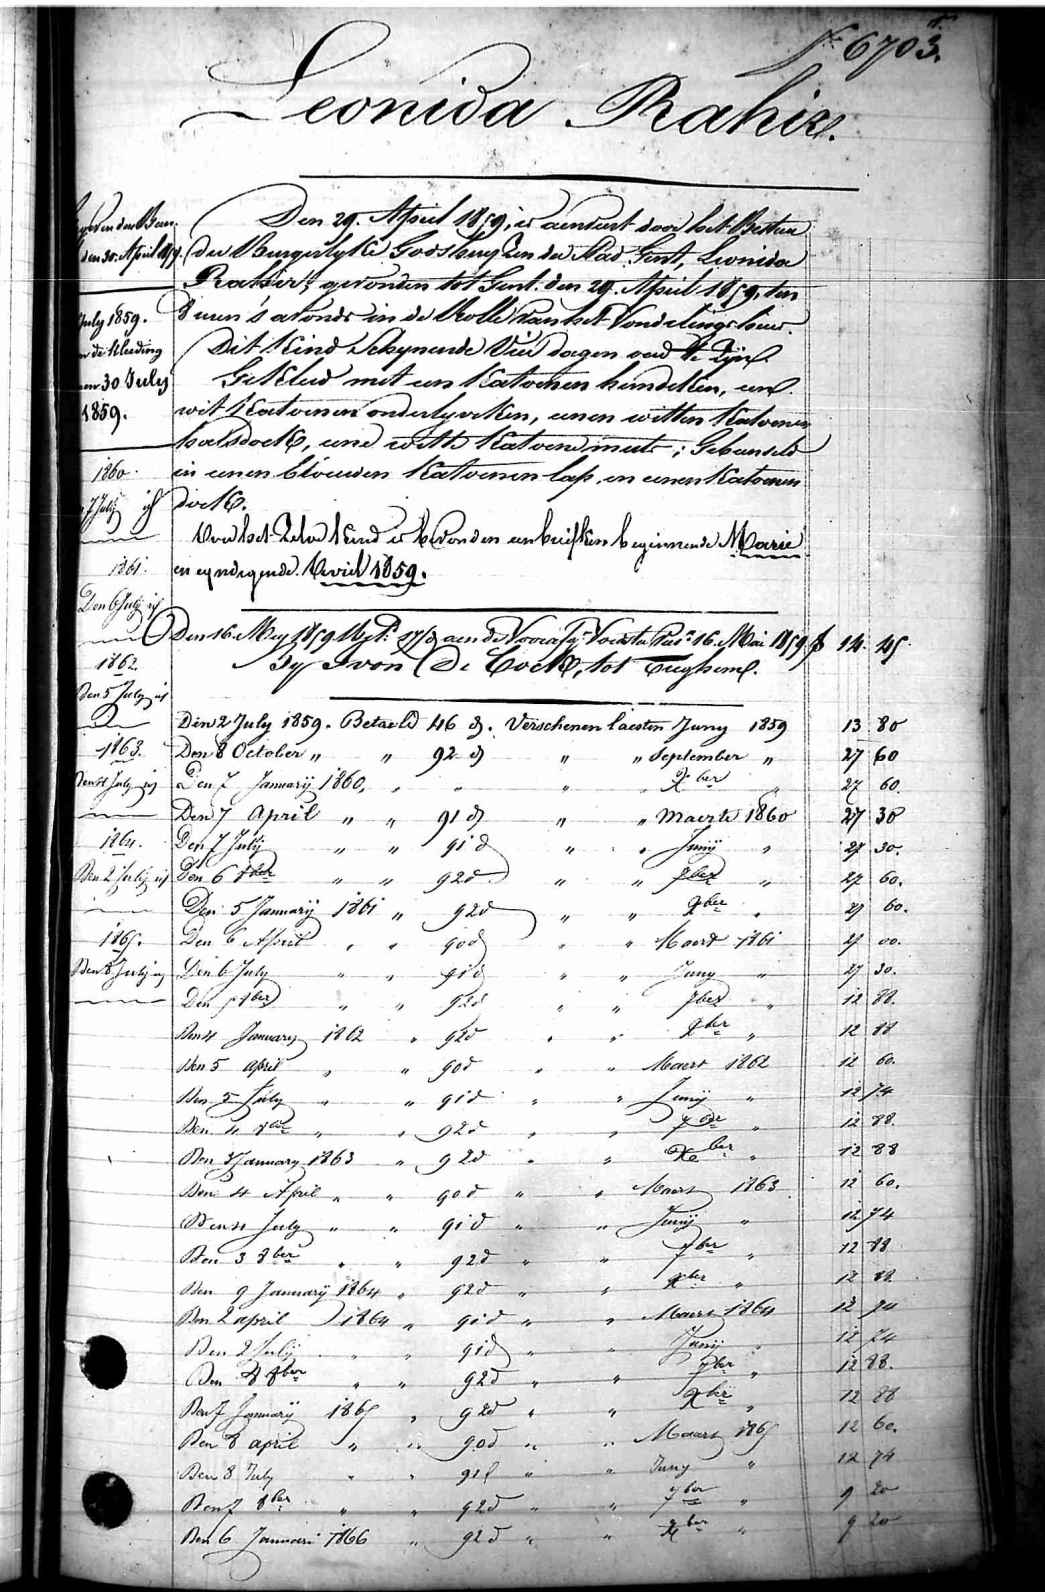 Nr 6703.
Leonida Rahier.
Den 29. April 1859, is aenveert door het Bestuur
der Burgerlyke Godshuyzen der Stad Gent, Leonida
Rahier, gevonden tot Gent. den 29. April 1859, ten
8 uren 's avonds in de Rolle van het Vondelingshuis.
Dit Kind Schynende Vier dagen oud te zyn.
Gekleed met een Katoenen hemdeken, een
wit Katoenen onderlyveken, eenen witten Katoenen
halsdoek, eene witte Katoene muts; Gebunseld
in eenen blouwen Katoenen lap, en eenen Katoenen
doek.
kind is bevonden een briefken beginnende Marie
en eyndigende David 1859.
den 30. April 1859.
July 1859.
de Kleeding
30 July
1859.
1860.
7 July id
1861.
Den 6 July id
1862.
Den 5 July id
1863.
Den 4 July id
1864.
Den 2 July id
1865.
Den 8 July id
Den 16. Mey 1859 aen de Voedster 16. Mai 1859 fr 14. 45.
By Ivon De Cock, tot
Den 2 July 1859. Betaeld 46 d. Verschenen laesten Juny 1859 13 80
Den 8 October " " 92 d " " September " 27 60
Den 7 Januarij 1860, " " " " Xber " 27 60.
Den 7 April " " 91 d " " Maerte 1860 27 30
Den 7 July " " 91 d " " Junij " 27 30
Den 6 8ber " " 92 d " " 7ber " 27 60.
Den 5 Januarij 1861 " 92 d " " Xber " 27 60.
Den 6 April " " 90 d " " Maert 1861 27 00.
Den 6 July " " 91 d " " Juny " 27 30.
Den 8ber " " 92 d " " 7ber " 12 88.
Den 4 January 1862 " 92 d " " Xber " 12 88
Den 5 april " " 90 d " " Maert 1862 12 60.
Den 5 July " " 91 d " " Junij " 12 74
Den 4 8ber " " 92 d " " 7ber " 12 88.
Den 3 January 1863 " 92 d " " Xber " 12 88
Den 4 April " " 90 d " " Maert 1863 12 60.
Den 4 July " " 91 d " " Junij " 12 74
Den 3 8ber " " 92 d " " 7ber " 12 88
Den 9 Januarij 1864 " 92 d " " Xber " 12 88.
Den 2 april 1864 " 91 d " " Maert 1864 12 74
Den 2 July " " 91 d " " Junij " 12 74
Den 8ber " " 92 d " " 7ber " 12 88.
Den 7 Januarij 1865 " 92 d " " Xber " 12 88
Den 8 april " " 90 d " " Maert 1865 12 60.
Den 8 July " " 91 d " " Juny " 12 74
Den 7 8ber " " 92 d " " 7ber " 9 20
Den 6 Januari 1866 " 92 d " " Xber " 9 20